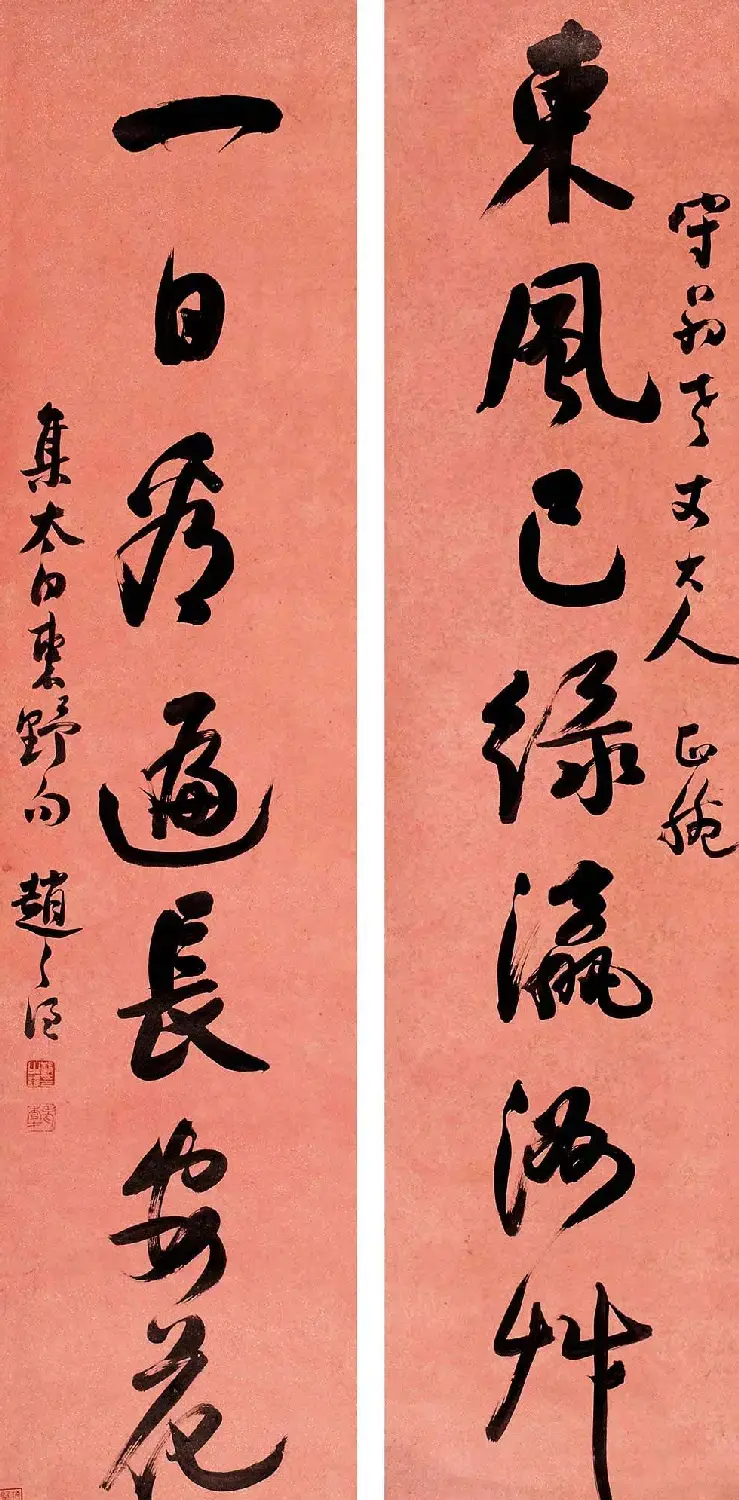 守翁老丈大人 正腕
東風已綠瀛洲艸
一日看遍長安花
集太白東野句 趙之謙